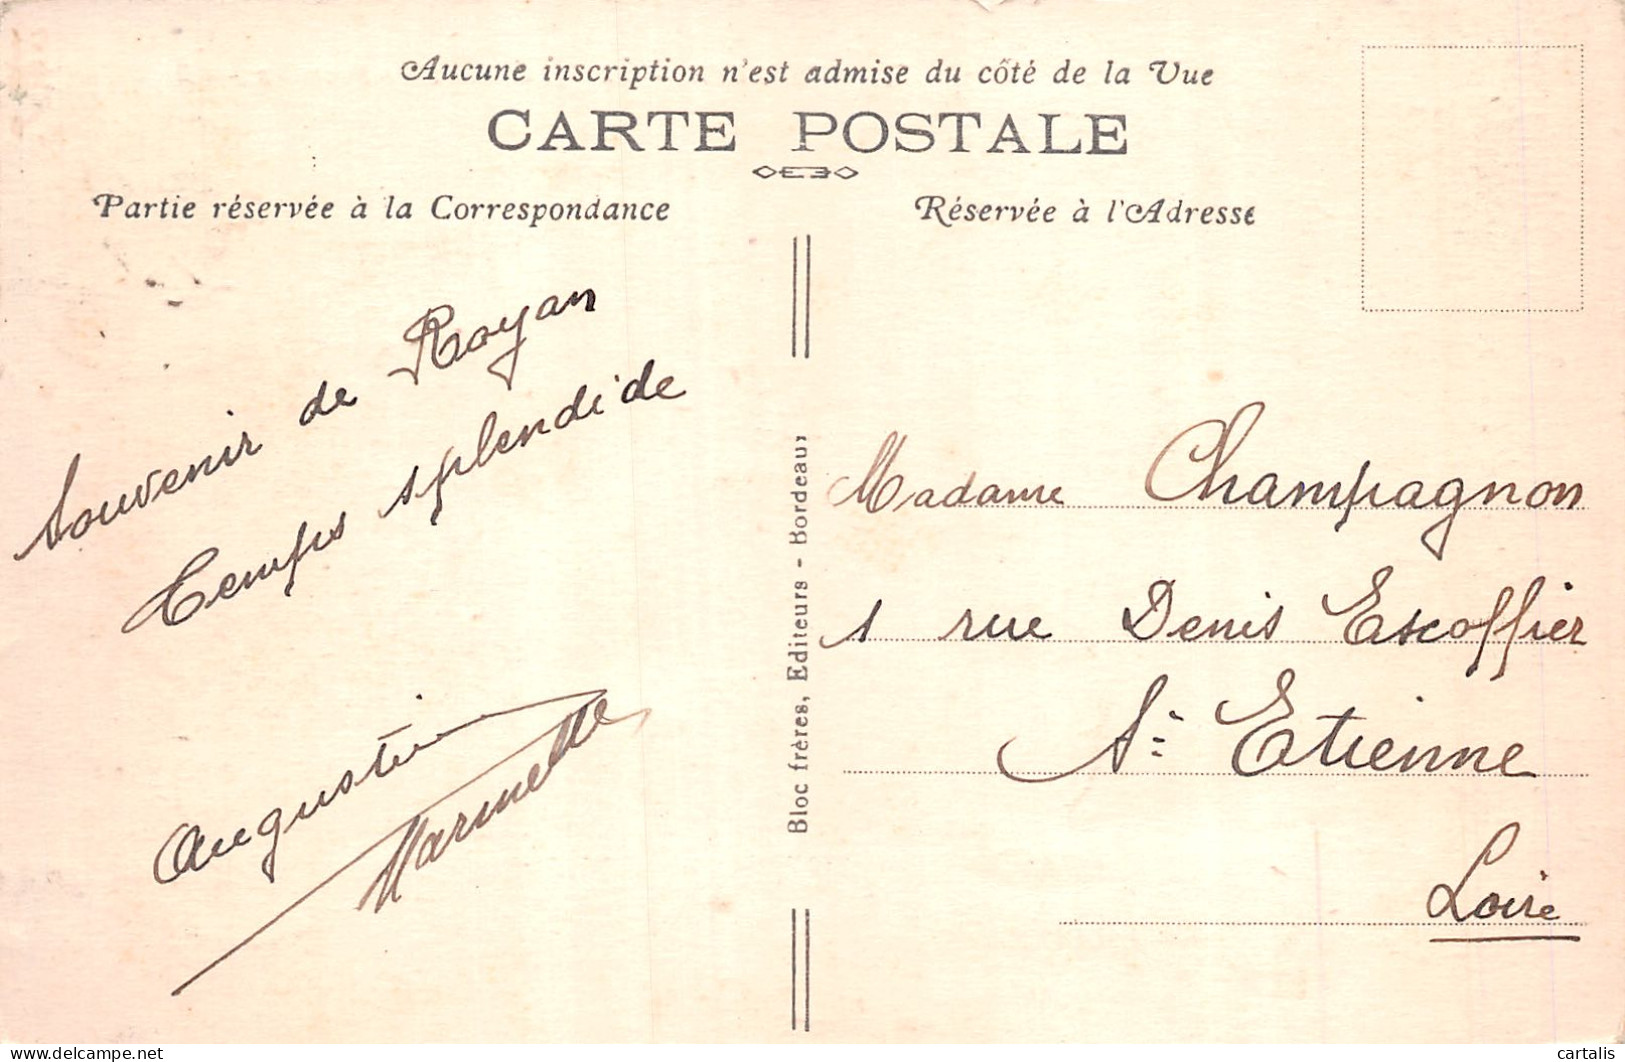 Aucune inscription n'est admise du côté de la Vue
CARTE POSTALE
Partie réservée à la Correspondance
Réservée à l'Adresse
Souvenir de Royan
Temps splendide
Augustin
Marinette
Bloc frères, Editeurs - Bordeaux
Madame Champagnon
1 rue Denis Escoffier
St Etienne
Loire
delcampe.net
cartalis